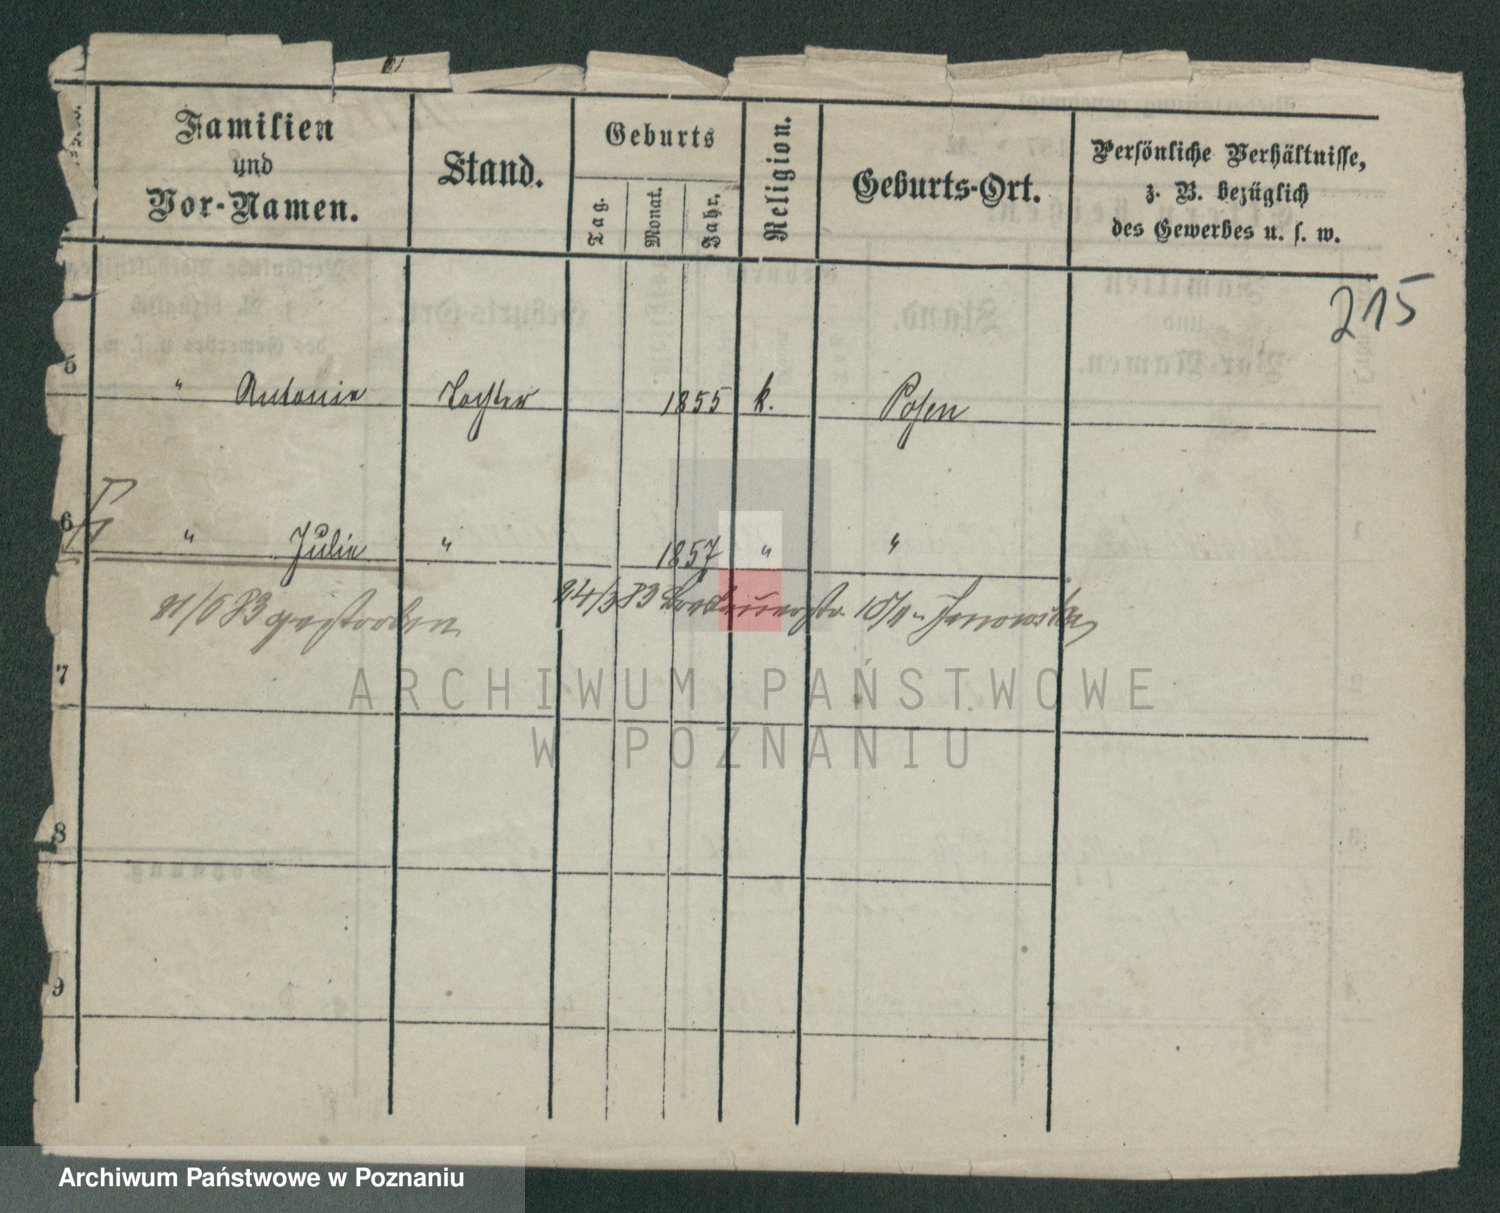 Familien
und
Vor-Namen.
Stand.
Geburts
Tag.
Monat.
Jahr.
Religion.
Geburts-Ort.
Persönliche Verhältnisse,
z. B. bezüglich
des Gewerbes u. s. w.
215
5 " Antonie Tochter 1855 k. Posen
6 " Julie " 1857 " "
21/6 83 gestorben
24/3 83 10/11 Janowska
7
8
9
ARCHIWUM PAŃSTWOWE
W POZNANIU
Archiwum Państwowe w Poznaniu